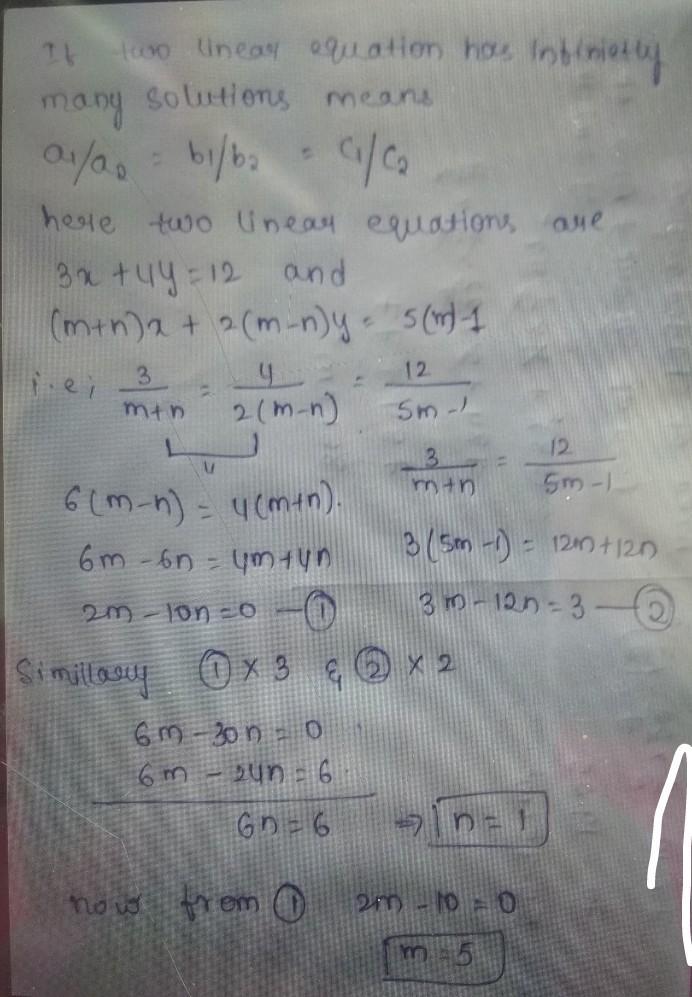 If two linear equation has infinietly
many solutions means
a1/a2 = b1/b2 = c1/c2
here two linear equations are
3x + 4y = 12 and
(m+n)x + 2(m-n)y = 5(m)-1
i.e; 3/(m+n) = 4/(2(m-n)) = 12/(5m-1)
3/(m+n) = 12/(5m-1)
6(m-n) = 4(m+n).
6m - 6n = 4m+4n 3(5m-1) = 12m+12n
2m - 10n = 0 — ① 3m - 12n = 3 — ②
Simillarly ① × 3 & ② × 2
6m - 30n = 0
6m - 24n = 6
6n = 6 ⇒ n = 1
now from ① 2m - 10 = 0
m = 5